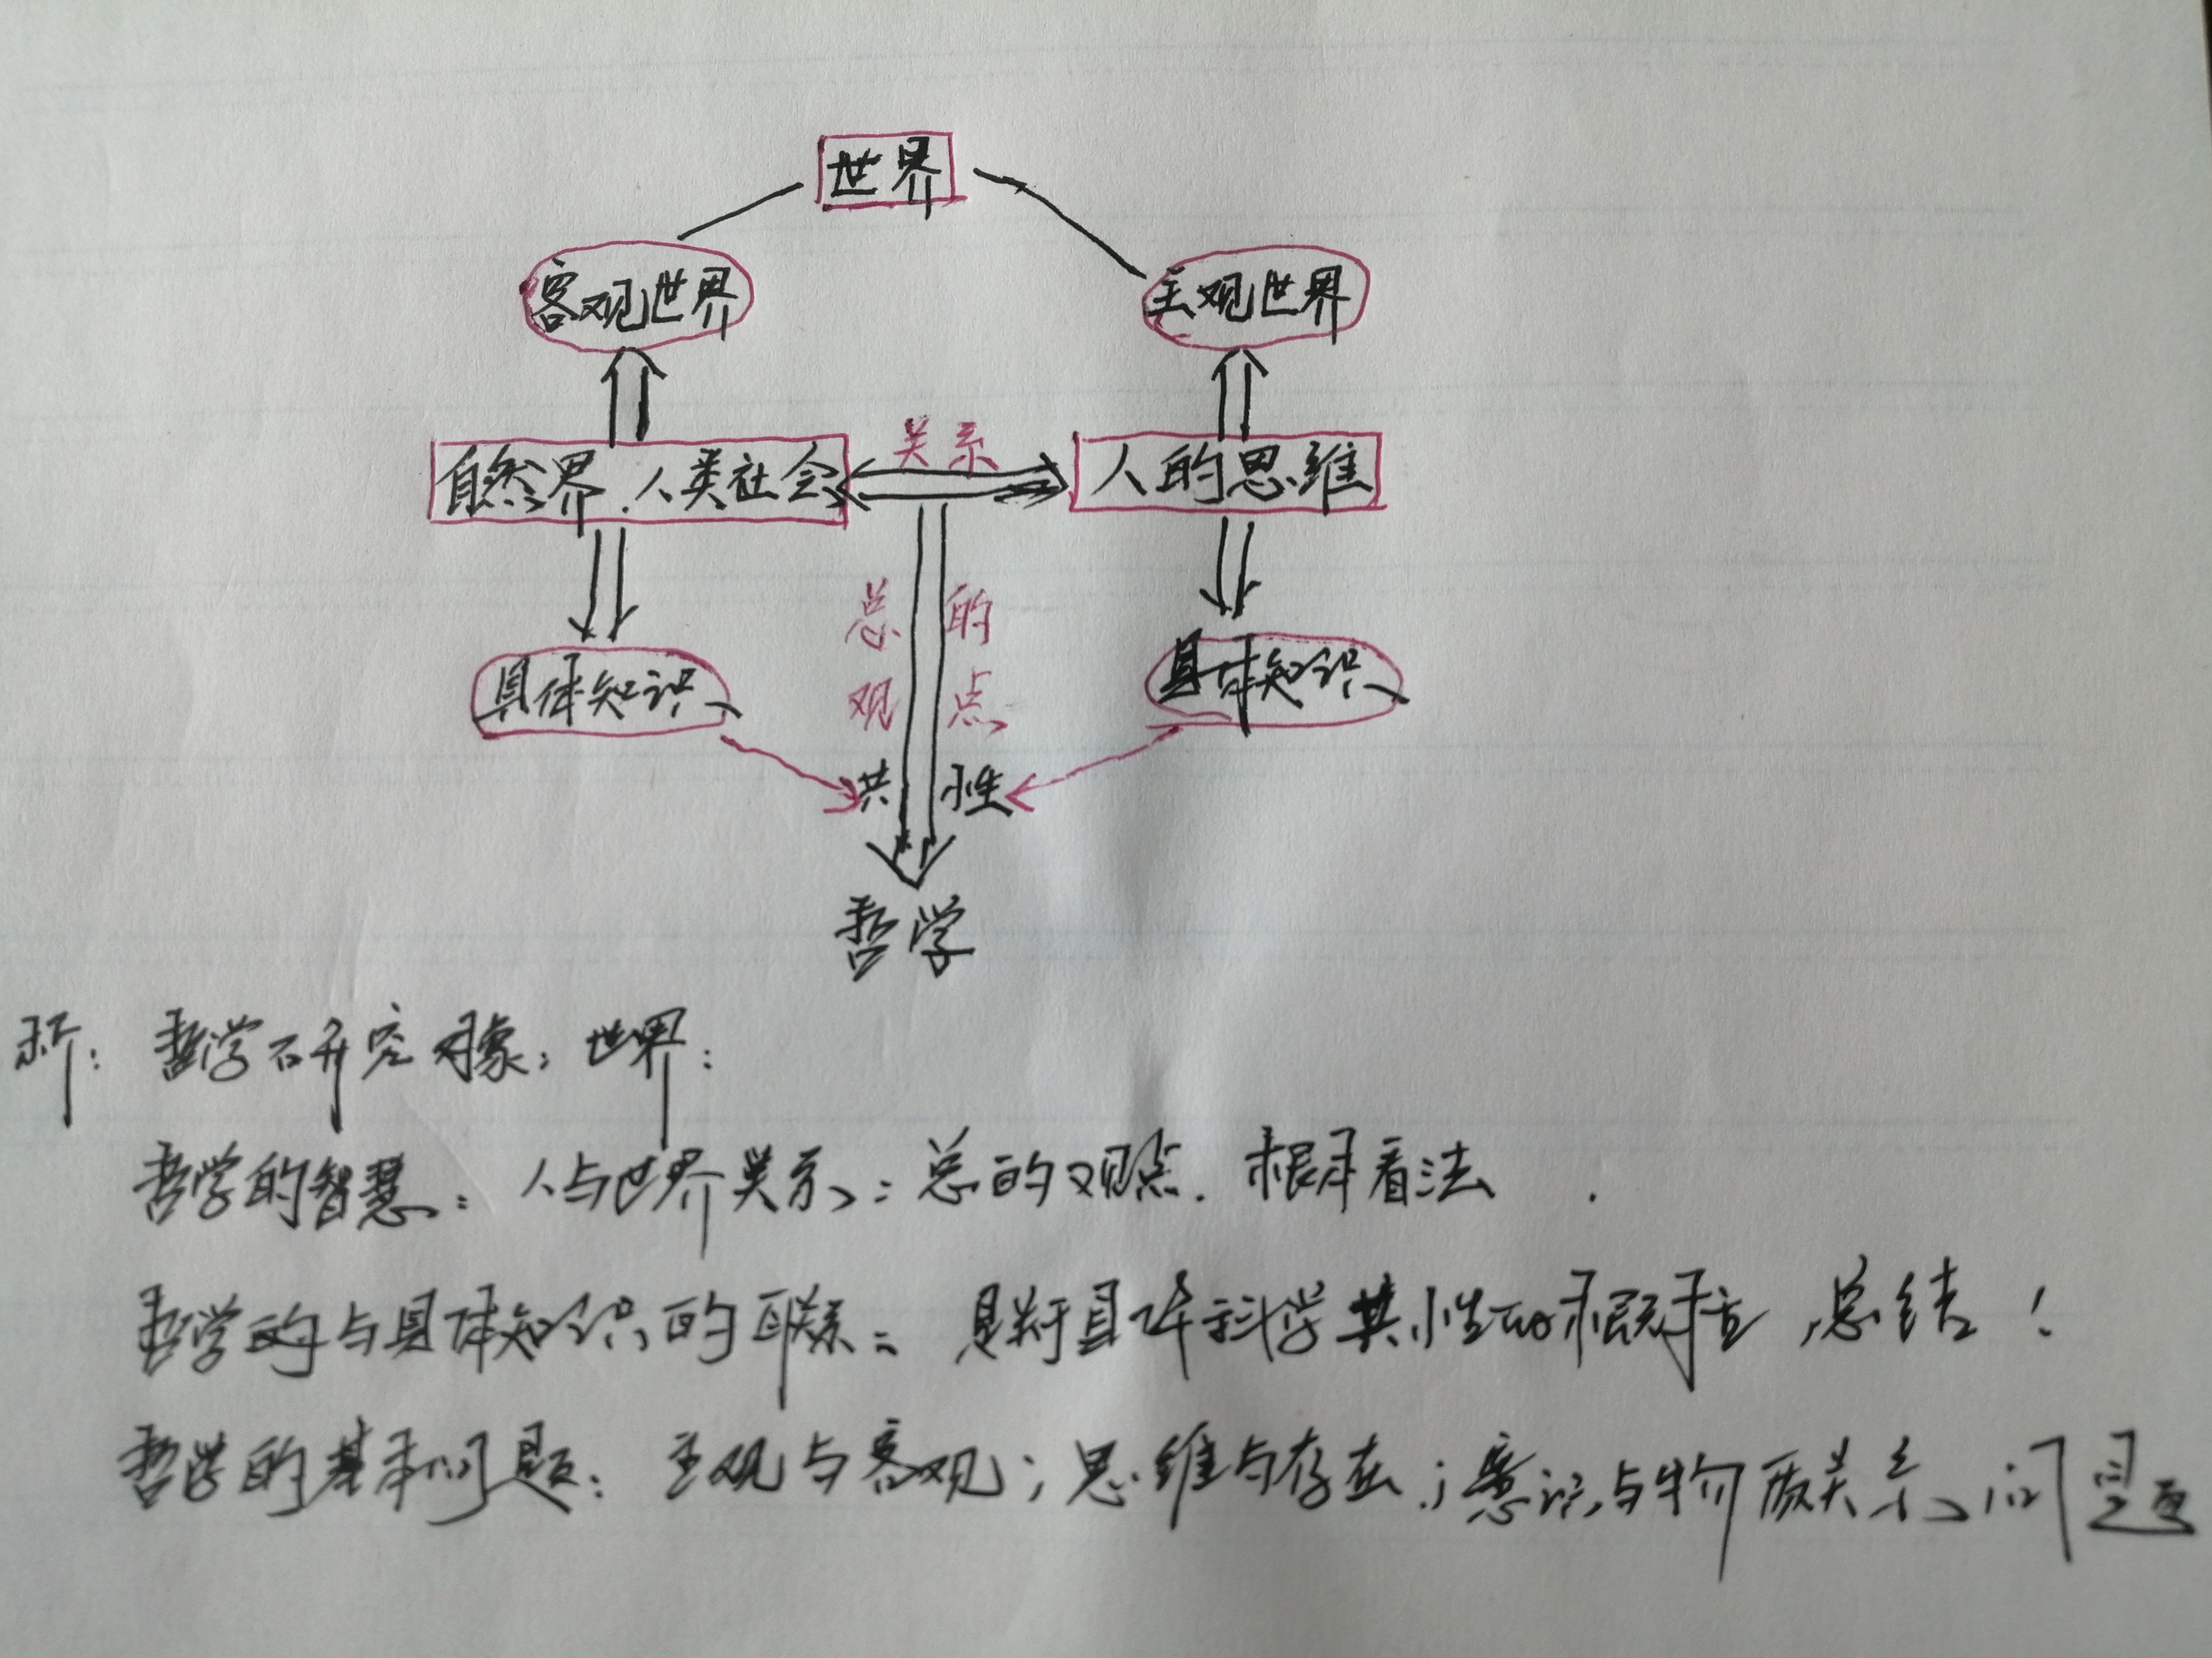 世界
客观世界 主观世界
关系
自然界、人类社会 人的思维
总的
观点
具体知识 具体知识
共性
哲学
析：哲学研究对象：世界：
哲学的智慧：人与世界关系：总的观点．根本看法．
哲学的与具体知识的联系：是对具体科学共性的概括，总结！
哲学的基本问题：主观与客观；思维与存在；意识与物质关系问题